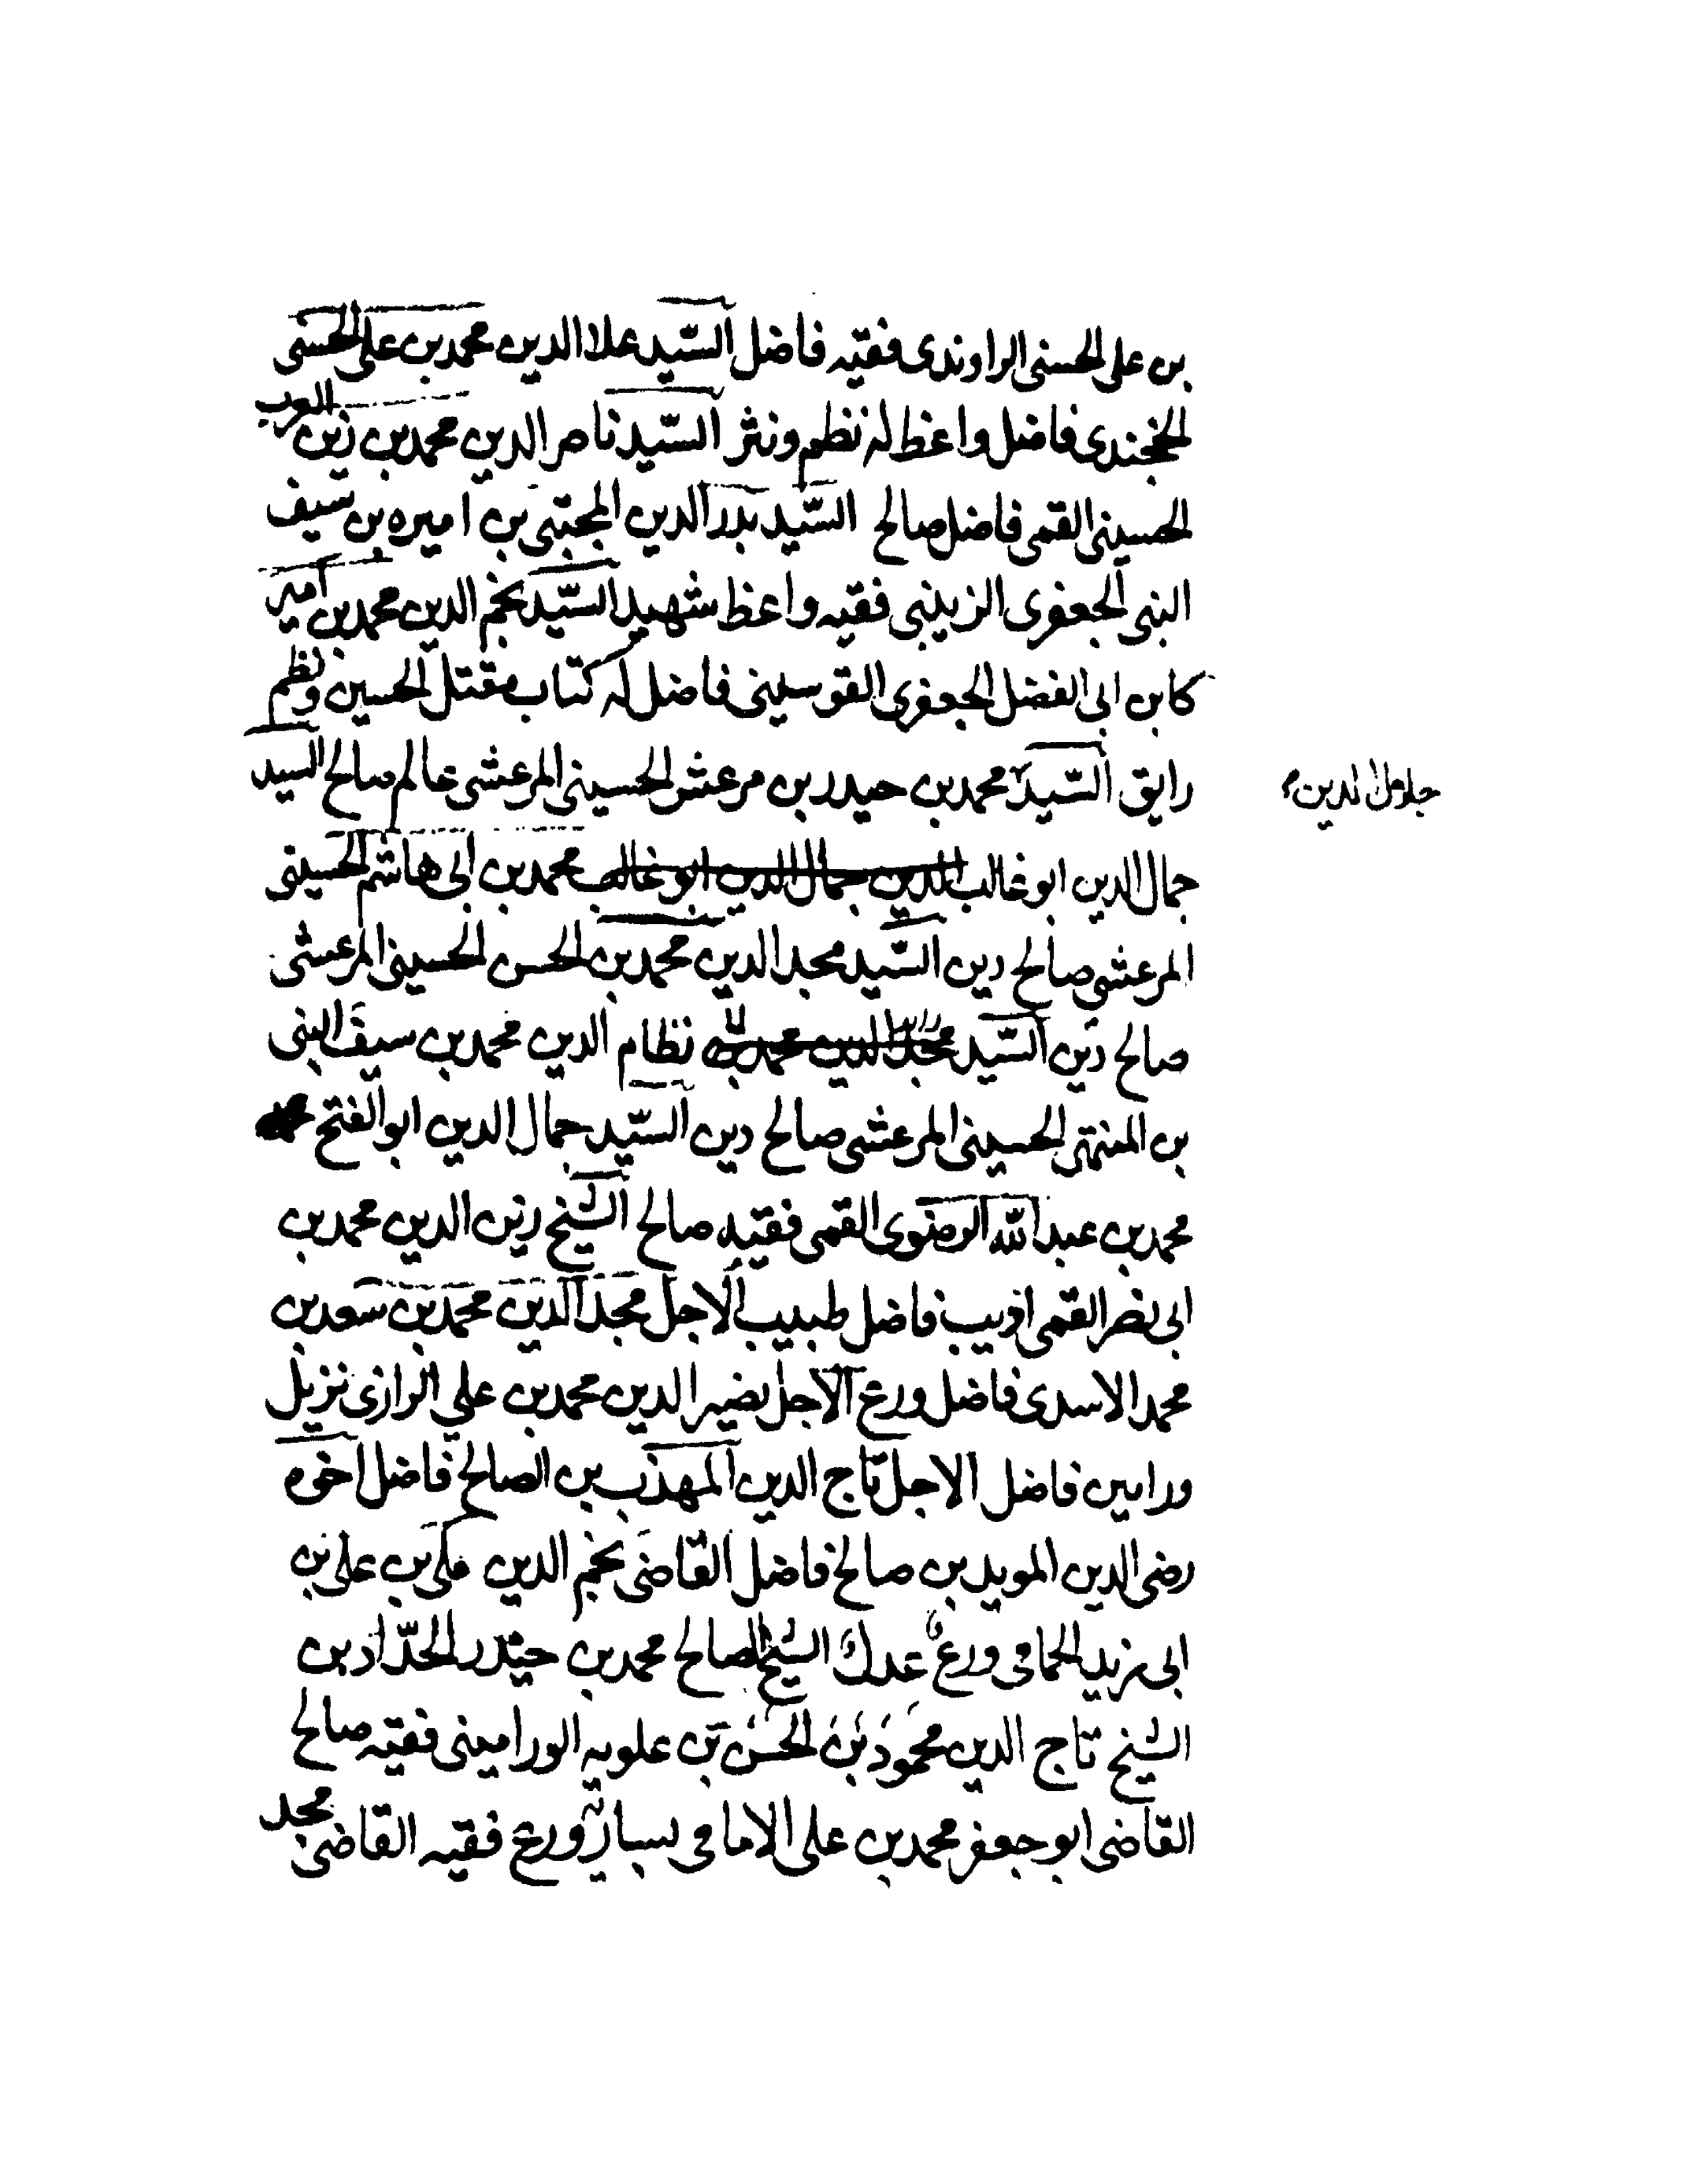 بن على الحسنى الراوندى فقيه فاضل السّيد علاا الدين محمد بن على الحسنى
الخجندى فاضل واعظ له نظم ونثر السّيد ناصر الدين محمد بن زين العرب
الحسينى القمى فاضل صالح السّيد بدر الدين المجتبى بن اميره بن سيف
النبى الجعفرى الزينبى فقيه واعظ شهيد السّيد نجم الدين محمد بن امير
كا بن ابى الفضل الجعفرى القوسينى فاضل له كتاب مقتل الحسين ونظم
رايق السّيد محمد بن حيدر بن مرعش الحسينى المرعشى عالم صالح السيد
جلال الدين
جمال الدين ابو غالب الدين جمال الدين ابو غالب محمد بن ابى هاشم الحسينى
المرعشى صالح دين السّيد مجد الدين محمد بن الحسن الحسينى المرعشى
صالح دين السّيد مجد الدين محمد بن نظام الدين محمد بن سيف النبى
بن المنتهى الحسينى المرعشى صالح دين السّيد جمال الدين ابو الفتح
محمد بن عبد الله الرضوى القمى فقيه صالح الشيخ زين الدين محمد بن
ابى نصر القمى اديب فاضل طبيب الاجل مجد الدين محمد بن سعد بن
محمد الاسدى فاضل ورع الاجل نصير الدين محمد بن علي الرازى نزيل
ورامين فاضل الاجل تاج الدين المهذب بن الصالح فاضل اخوه
رضى الدين المويد بن صالح فاضل القاضى نجم الدين مكى بن على بن
ابى زيد الحمامى ورع عدل الشيخ الصالح محمد بن حيدر الحدّاد بن
الشيخ تاج الدين محمود بن الحسن بن علويه الورامينى فقيه صالح
القاضى ابو جعفر محمد بن على الامامى بساريه ورع فقيه القاضى مجد